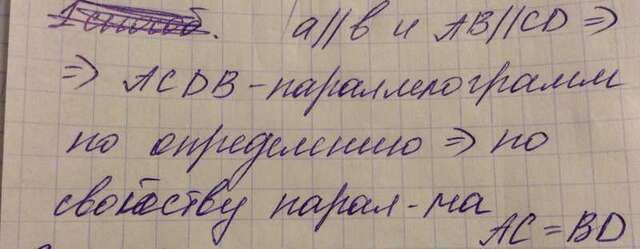 1 способ. a//b и AB//CD ⇒
⇒ ACDB - параллелограмм
по определению ⇒ по
свойству парал-ма
AC = BD